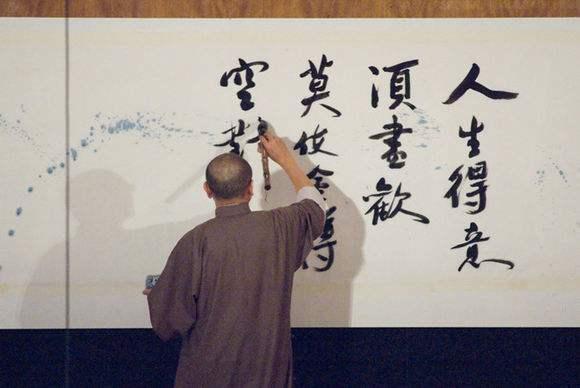 人生得意
須盡歡
莫使金樽
空對